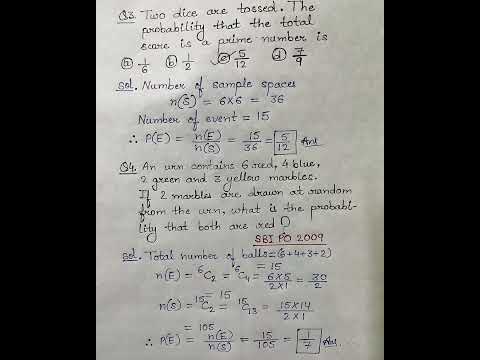 Q3. Two dice are tossed. The
probability that the total
score is a prime number is
(a) 1/6 (b) 1/2 (c) 5/12 (d) 7/9
Sol. Number of sample spaces
n(S) = 6×6 = 36
Number of event = 15
∴ P(E) = n(E)/n(S) = 15/36 = 5/12 Ans
Q4. An urn contains 6 red, 4 blue,
2 green and 3 yellow marbles.
If 2 marbles are drawn at random
from the urn, what is the probabi-
lity that both are red?
SBI PO 2009
Sol. Total number of balls = (6+4+3+2)
= 15
n(E) = ⁶C₂ = ⁶C₄ = 6×5/2×1 = 30/2
= 15
n(S) = ¹⁵C₂ = ¹⁵C₁₃ = 15×14/2×1
= 105
∴ P(E) = n(E)/n(S) = 15/105 = 1/7 Ans.